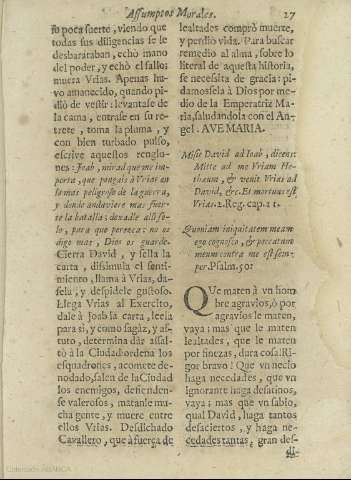 Assumptos Morales. 27
ſo poca ſuerte, viendo que
todas ſus diligencias ſe le
desbaratauan, echò mano
del poder, y echò el fallo:
muera Vrias. Apenas hu-
vo amanecido, quando pi-
diò de veſtir: levantaſe de
la cama, entraſe en ſu re-
trete, toma la pluma, y
con bien turbado pulſo,
eſcrive aqueſtos renglo-
nes: Joab, mirad que me im-
porta, que pongais à Vrias en
lo mas peligroſo de la guerra,
y donde anduviere mas fuer-
te la batalla; dexadle alli ſo-
lo, para que perezca: no os
digo mas, Dios os guarde.
Cierra David, y ſella la
carta, diſsimula el ſenti-
miento, llama à Vrias, da-
ſela, y deſpidele guſtoſo.
Llega Vrias al Exercito,
dale à Joab la carta, leela
para sì, y como ſagàz, y aſ-
tuto, determina dàr aſſal-
tò à la Ciudad: ordena los
eſquadrones, acomete de-
nodado, ſalen de la Ciudad
los enemigos, defienden-
ſe valeroſos, matanle mu-
cha gente, y muere entre
ellos Vrias. Deſdichado
Cavallero, que à fuerça de
lealtades comprò muerte,
y perdiò vida. Para buſcar
remedio al alma, ſobre lo
literal de aqueſta hiſtoria,
ſe neceſsita de gracia: pi-
damosſela à Dios por me-
dio de la Emperatriz Ma-
ria, ſaludandola con el An-
gel: AVE MARIA.
Miſit David ad Ioab, dicens:
Mitte ad me Vriam He-
thæum, & venit Vrias ad
David, &c. Et mortuus eſt
Vrias. 2. Reg. cap. 11.
Quoniam iniquitatem meam
ego cognoſco, & peccatum
meum contra me eſt ſem-
per. Pſalm. 50.
QVe maten à vn hom
bre agravios, ò por
agravios le maten,
vaya; mas que le maten
lealtades, que le maten
por finezas, dura coſa! Ri-
gor bravo! Que vn necio
haga necedades, que vn
ignorante haga deſatinos,
vaya; mas que vn ſabio,
qual David, haga tantos
deſaciertos, y haga ne-
cedades tantas, gran deſ-
Colección ABANCA